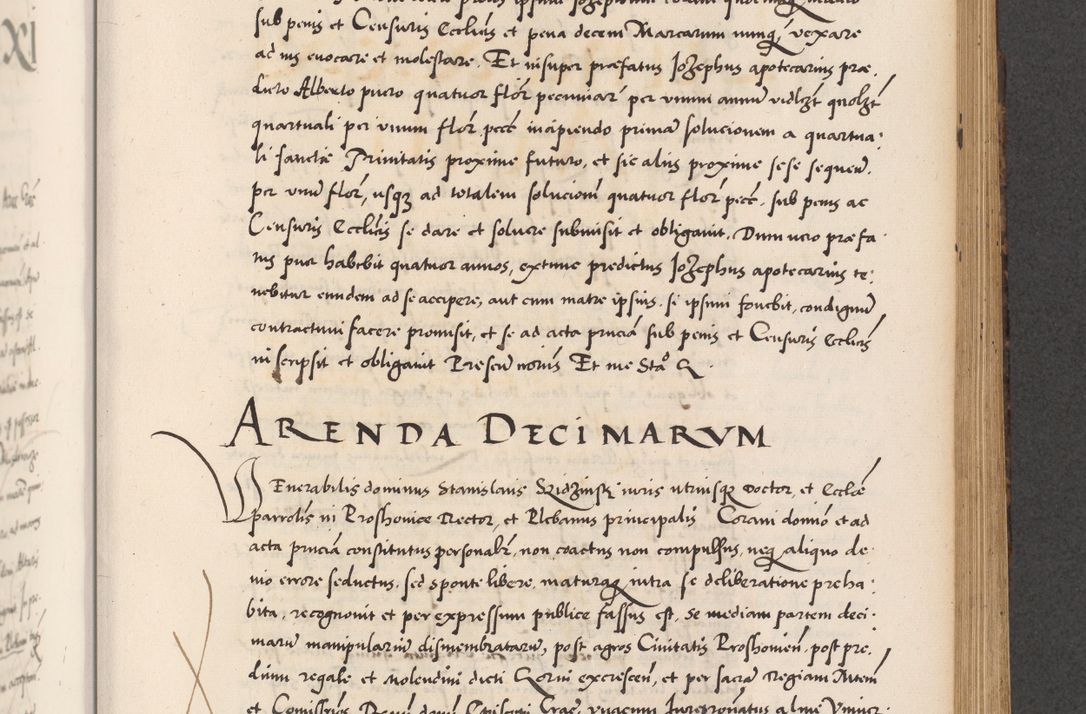 sub penis et Censuris Eccliis et pena decem Marcarum nunq, vexare
ad ius euocare et molestare. Et insuper præfatus Jozephus apotecarius præ.
dicto Alberto puero quatuor flór pecuniar per vnum annu vidlzt quolzt
quartuali per vnum flór pecc incipiendo primā solucionem a quartua:
li sanctæ Trinitatis proxime futuro, et sic alijs proxime sese sequen.
per vnū flor, vsqz ad totalem solucionē quatuor flor pecc. sub penis ac
Censuris Eccliis se dare et soluere submisit et obligauit. Dum vero præfa
tus puer habebit quatuor annos, extunc predictus Jozephus apotecarius te:
nebitur eundem ad se accipere, aut cum matre ipsius, si ipsum fouebit, condignū
contractum facere promisit, et se ad acta pncia sub penis et Censuris Eccliis
in scripsit et obligauit Presen notus Et me Sta Q.
ARENDA DECIMARVM
VEnerabilis dominus Stanislaus iuris vtriusq Doctor, et Eccle
parrolis in Proshouice Rector, et Plebanus principalis Coram domō et ad
acta pncia constitutus personalr, non coactus non compulsus, neq aliquo de
uio errore seductus, sed sponte libere, maturaq intra se deliberatione preha:
bita, recognouit et per expressum publice fassus est, Se mediam partem deci:
marū manipulariū dismembratarū, post agros Ciuitatis Proshouien, post præ:
dium regale et Molendini dicti excrescen, et per sacrā Regiam Mtem